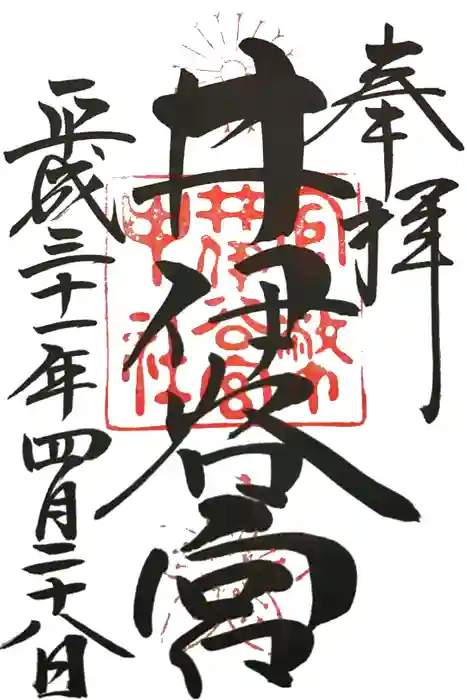 奉拝
井伊谷宮
平成三十一年四月二十八日
井伊谷宮